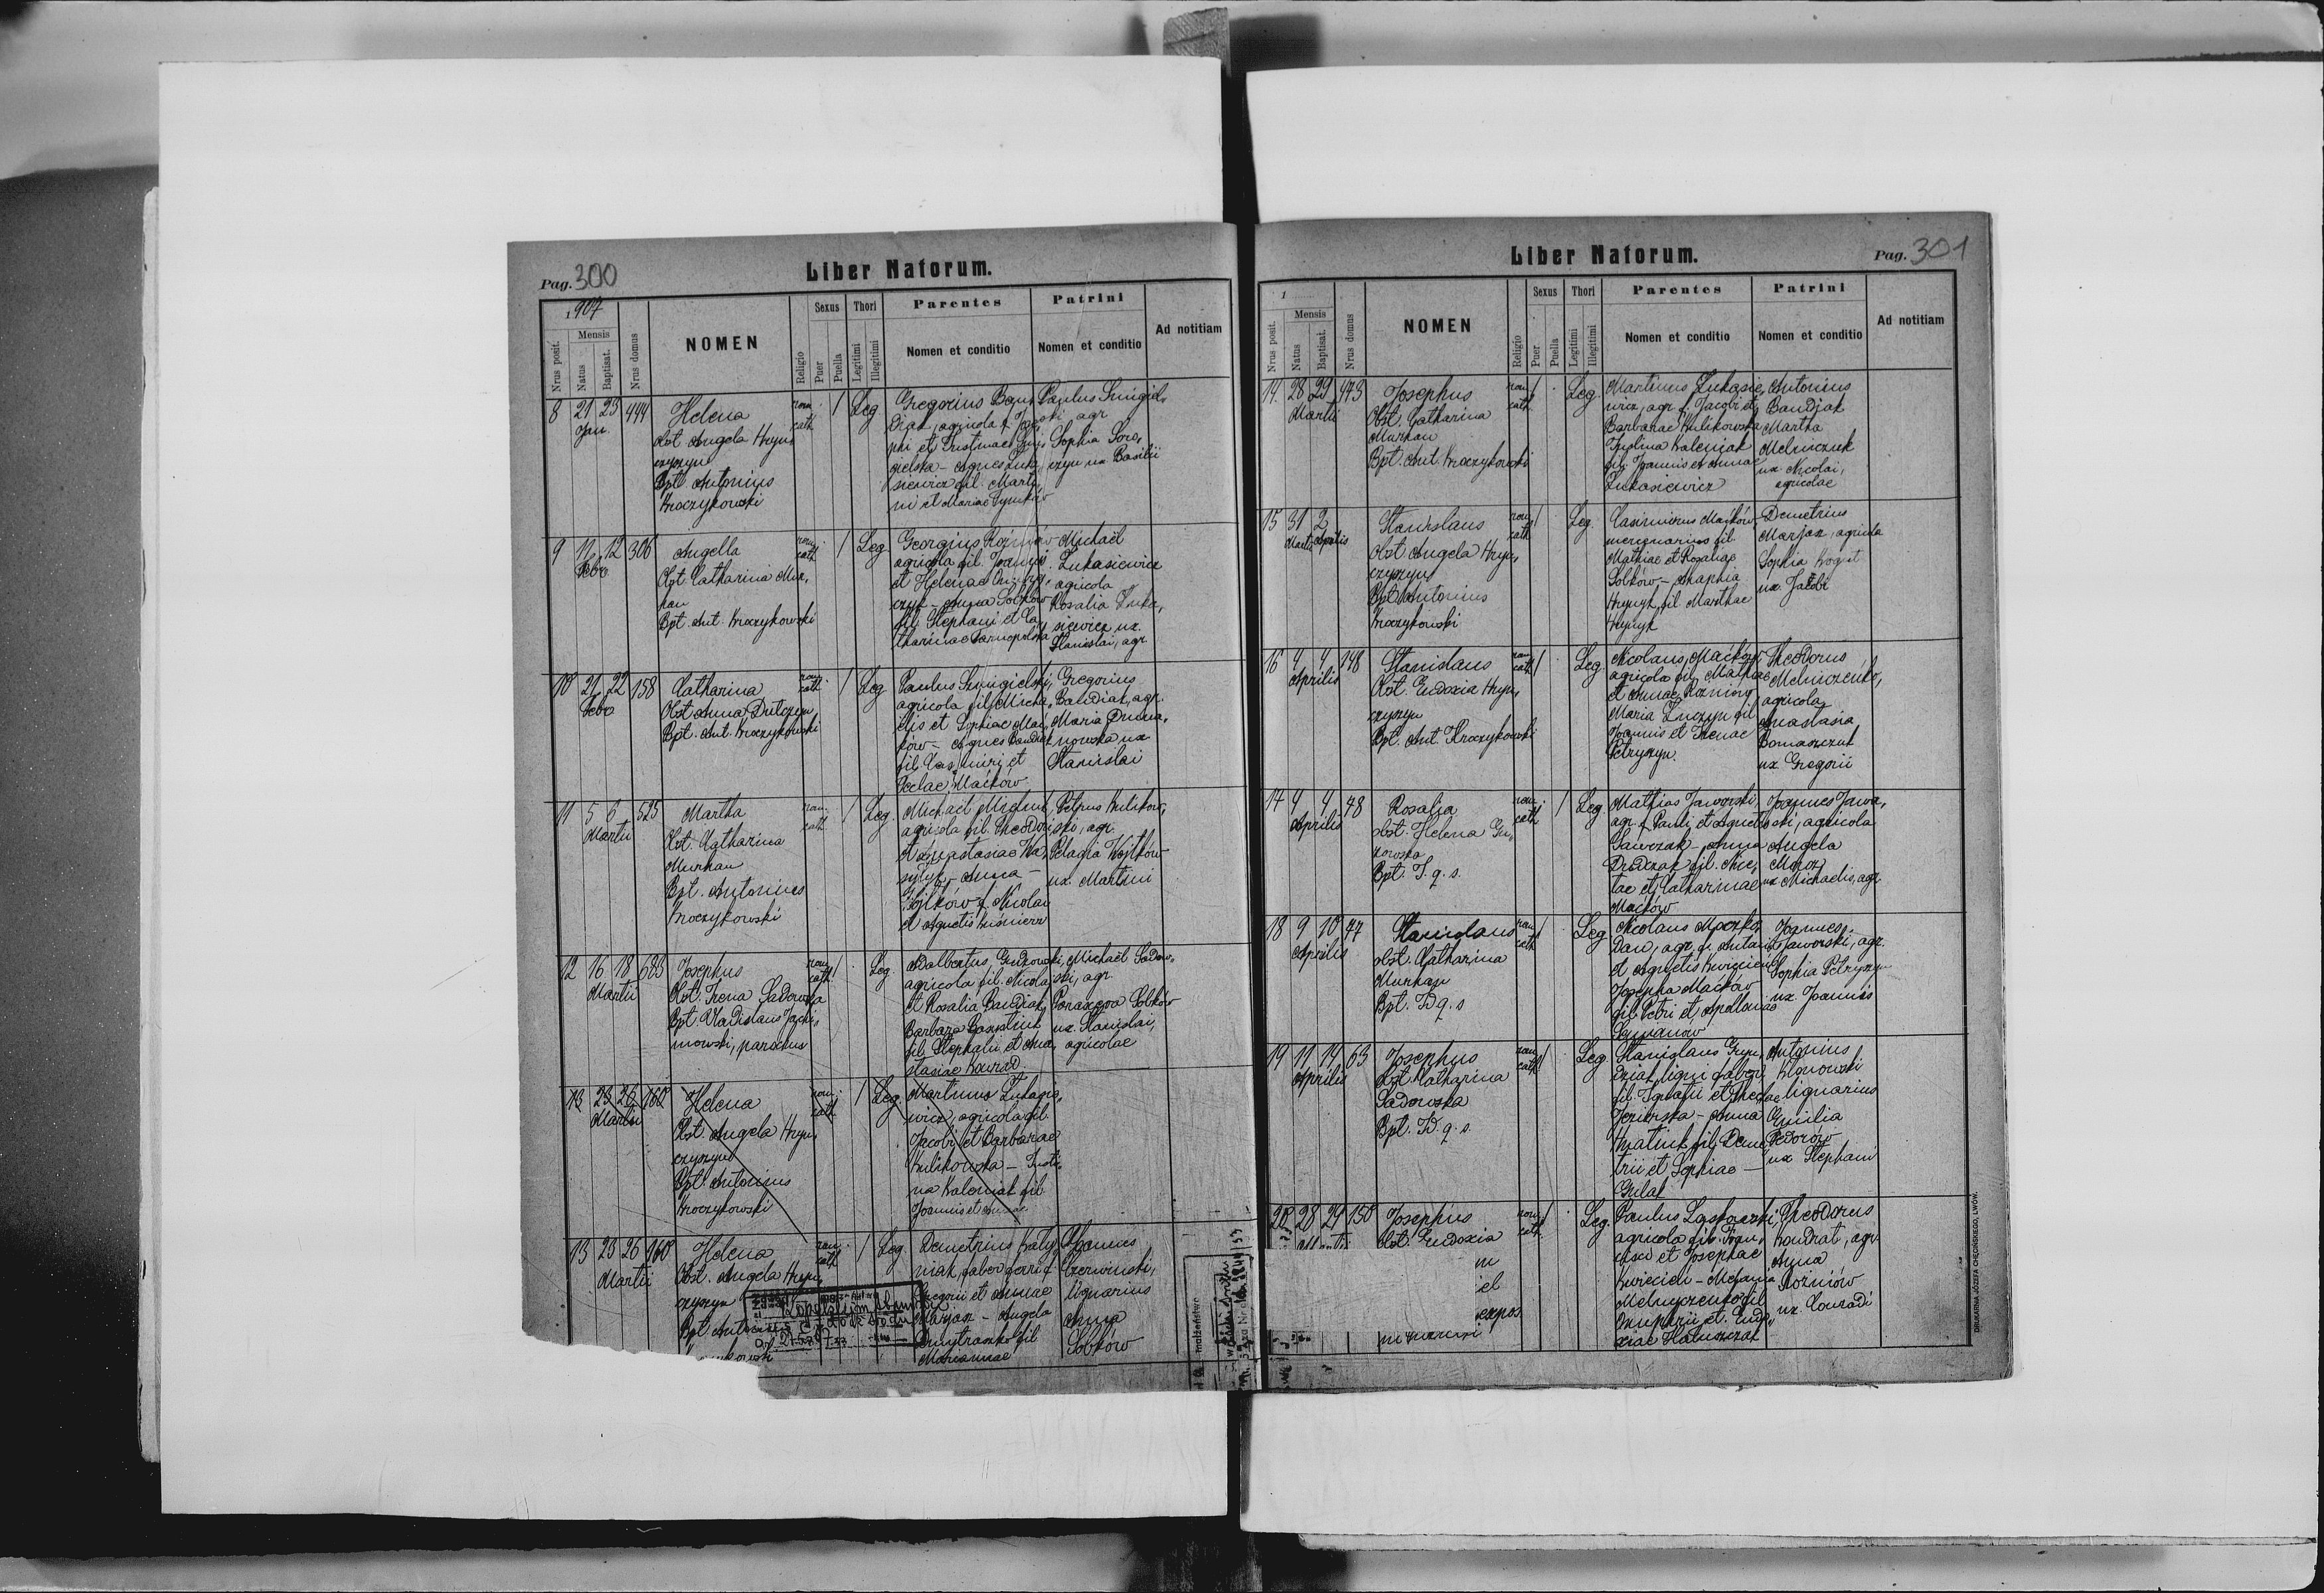 Pag. 300
Liber Natorum.
1907
Nrus posit.
Mensis
Natus
Baptisat.
Nrus domus
NOMEN
Religio
Sexus
Puer
Puella
Thori
Legitimi
Illegitimi
Parentes
Nomen et conditio
Patrini
Nomen et conditio
Ad notitiam
8 21 23 444
Jan
Helena
Obst. Angela Hryn,
czyszyn
Bpt. Antonius
Kroczykowski
rom.
cath.
/ Leg
Gregorius Bau,
diak, agricola f. Jose,
phi et
gielska - Agnes Łuka,
siewicz fil. Marti,
ni et Mariae
Paulus Smigiel,
ski agr
Sophia
ux Basilii
9 11 12 306
Febr
Angella
Obst. Catharina Mur,
han
Bpt. Ant. Kroczykowski
rom.
cath.
/ Leg
Georgius
agricola fil. Joannis
et Helenae
czyk - Anna Sobków
fil. Stephani et Ca,
tharinae Tarnopolska
Michaël
Łukasiewicz
agricola
Rosalia Łuka,
siewicz ux.
Stanislai, agr.
10 21 22 158
Febr
Catharina
Obst Anna
Bpt. Ant. Kroczykowski
rom.
cath.
/ Leg
Paulus Smigielski,
agricola fil. Micha,
elis et Sophiae Mać,
ków - Agnes Baudiak
fil. Casimiri et
Maćków
Gregorius
Baudiak, agr.
Maria
nowska ux
Stanislai
11 5 6 525
Martii
Martha
Obst. Catharina
Murhan
Bpt. Antonius
Kroczykowski
rom.
cath.
/ Leg.
Michaël
agricola fil. Theodori
et Anastasiae
- Anna -
Wojtków f. Nicolai
et Agnetis Kuśnierz
Petrus Kulikow,
ski, agr.
Pelagia Wojtków
ux. Martini
12 16 18 683
Martii
Josephus
Obst. Irena Sadowska
Bpt. Vladislaus Jachi,
mowski, parochus
rom.
cath.
/ Leg.
Adalbertus Gudzowski,
agricola fil. Nicolai
et Rosalia Baudiak,
Barbara
fil. Stephani et Ana,
stasiae Konrad.
Michaël Sadow,
ski, agr.
Paraxeva Sobków
ux. Stanislai,
agricolae
13 23 26 160
Martii
Helena
Obst. Angela Hryn,
czyszyn
Bpt. Antonius
Kroczykowski
rom.
cath.
/ Leg.
Martinus Łukasie,
wicz, agricola fil.
Jacobi et Barbarae
Kulikowska - Justi,
na Kaleniak fil
Joannis et Annae
13 23 26 160
Martii
Helena
Obst. Angela Hryn,
czyszyn
Bpt. Antonius
rom.
cath.
/ Leg
Demetrius
niak, faber ferri f.
Gregorii et Annae
Marjasz - Angela
Dmytraszko fil
Mariannae
Joannes
Czerwinski,
lignarius
Anna
Sobków
małżeństwo
Liber Natorum.
Pag. 301
1
Nrus posit.
Mensis
Natus
Baptisat.
Nrus domus
NOMEN
Religio
Sexus
Puer
Puella
Thori
Legitimi
Illegitimi
Parentes
Nomen et conditio
Patrini
Nomen et conditio
Ad notitiam
14. 28 29 473
Martii
Josephus
Obst. Catharina
Murhan
Bpt. Ant. Kroczykowski
rom.
cath.
/ Leg.
Martinus Łukasie,
wicz, agr. f. Jacobi et
Barbarae Kulikowska
Justina Kaleniak
fil. Joannis et Annae
Łukasiewicz
Antonius
Baudjak
Martha
Melniczuk
ux Nicolai,
agricolae
15 31 2
Martii Aprilis
Stanislaus
Obst Angela Hryn,
czyszyn
Bpt Antonius
Kroczykowski
rom.
cath.
/ Leg.
Casimirus Maćków,
mercenarius fil
Mathiae et Rosaliae
Sobków - Anaphia
Hrynyk fil Marthae
Hrynyk
Demetrius
Marjasz, agricola
Sophia
ux. Jacobi
16 4 4 148
Aprilis
Stanislaus
Obst. Eudoxia Hryn,
czyszyn
Bpt. Ant. Kroczykowski
rom.
cath.
/ Leg
Nicolaus Maćków
agricola fil. Mathiae
et Annae
Maria fil
Joannis et Irenae
Petryszyn.
Theodorus
Melniczenko,
agricola
Anastasia
ux. Gregorii
17 4 4 48
Aprilis
Rosalia
obst. Helena Gu,
Bpt. I. q. s.
rom.
cath.
/ Leg
Mathias Jaworski,
agr. f. Pauli et Agnetis
Sawczak - Anna
Drudzak fil. Nice,
tae et Catharinae
Maćków
Joannes Jawor,
ski, agricola
Angela
Moroz
ux Michaelis, agr.
18 9 10 47
Aprilis
Stanislaus
obst. Catharina
Murhan
Bpt. Id q. s
rom.
cath.
/ Leg
Nicolaus
dan, agr. f. Antonii
et Agnetis Kwiecień
Josepha Maćków
fil. Petri et Apolloniae
Joannes
Jaworski, agr.
Sophia Petryszyn
ux. Joannis
19 11 14 63
Aprilis
Josephus
Obst Catharina
Sadowska
Bpt. Id. q. s.
rom.
cath.
/ Leg.
Stanislaus
dziak, ligni faber
fil. Ignatii et Theclae
Jezierska - Anna
fil. Deme,
trii et Sophiae -
Antonius
Klonowski
lignarius
Emilia
Fedorów
ux Stephani
20 28 29 150
Josephus
Obst. Eudoxia
rom.
cath.
/ Leg.
Paulus
agricola fil. Fran,
cisci et Josephae
Kwiecień - Melania
Melnyczenko fil
Onuphrii et Eudo,
xiae
Theodorus
Kondrat, agr.
Anna
Rożniów
ux. Conradi
DRUKARNIA JÓZEFA CHĘCIŃSKIEGO, LWÓW.